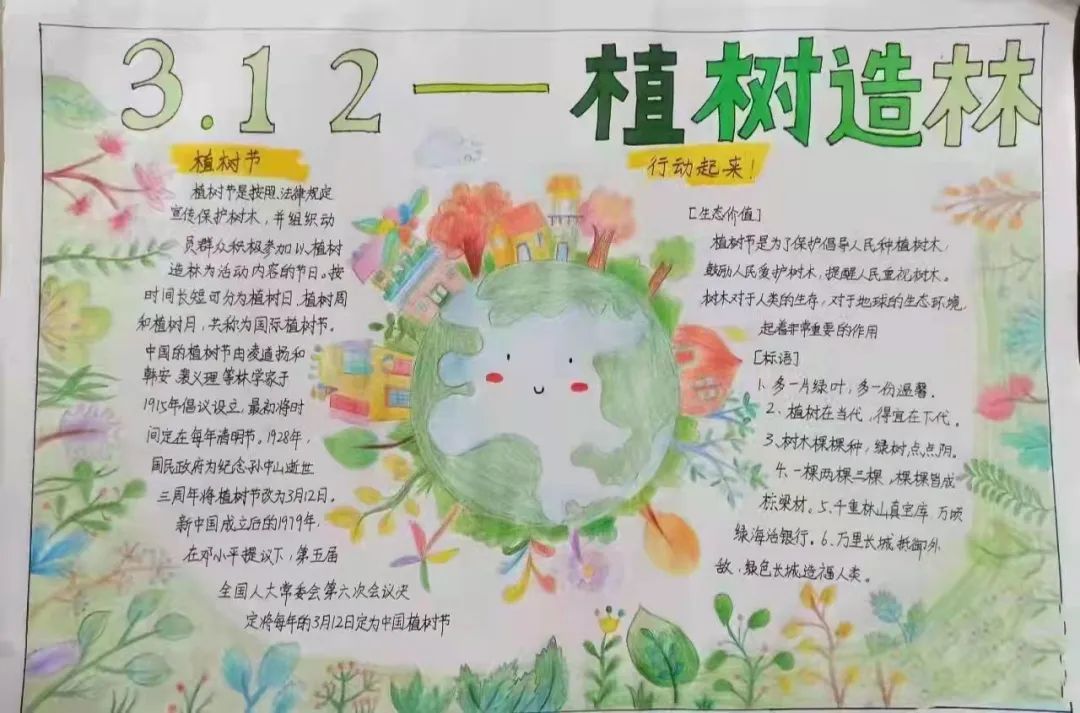 3.12——植树造林
植树节
植树节是按照法律规定
宣传保护树木，并组织动
员群众积极参加以植树
造林为活动内容的节日。按
时间长短可分为植树日、植树周
和植树月，共称为国际植树节。
中国的植树节由凌道扬和
韩安、裴义理等林学家于
1915年倡议设立，最初将时
间定在每年清明节。1928年，
国民政府为纪念孙中山逝世
三周年将植树节改为3月12日。
新中国成立后的1979年，
在邓小平提议下，第五届
全国人大常委会第六次会议决
定将每年的3月12日定为中国植树节
行动起来！
[生态价值]
植树节是为了保护倡导人民种植树木，
鼓励人民爱护树木，提醒人民重视树木。
树木对于人类的生存，对于地球的生态环境，
起着非常重要的作用
[标语]
1、多一片绿叶，多一份温馨.
2、植树在当代，得宜在下代。
3、树木棵棵种，绿树点点阴。
4、一棵两棵三棵，棵棵皆成
栋梁材。5、千重林山真宝库 万顷
绿海活银行。6、万里长城抵御外
敌，绿色长城造福人类。